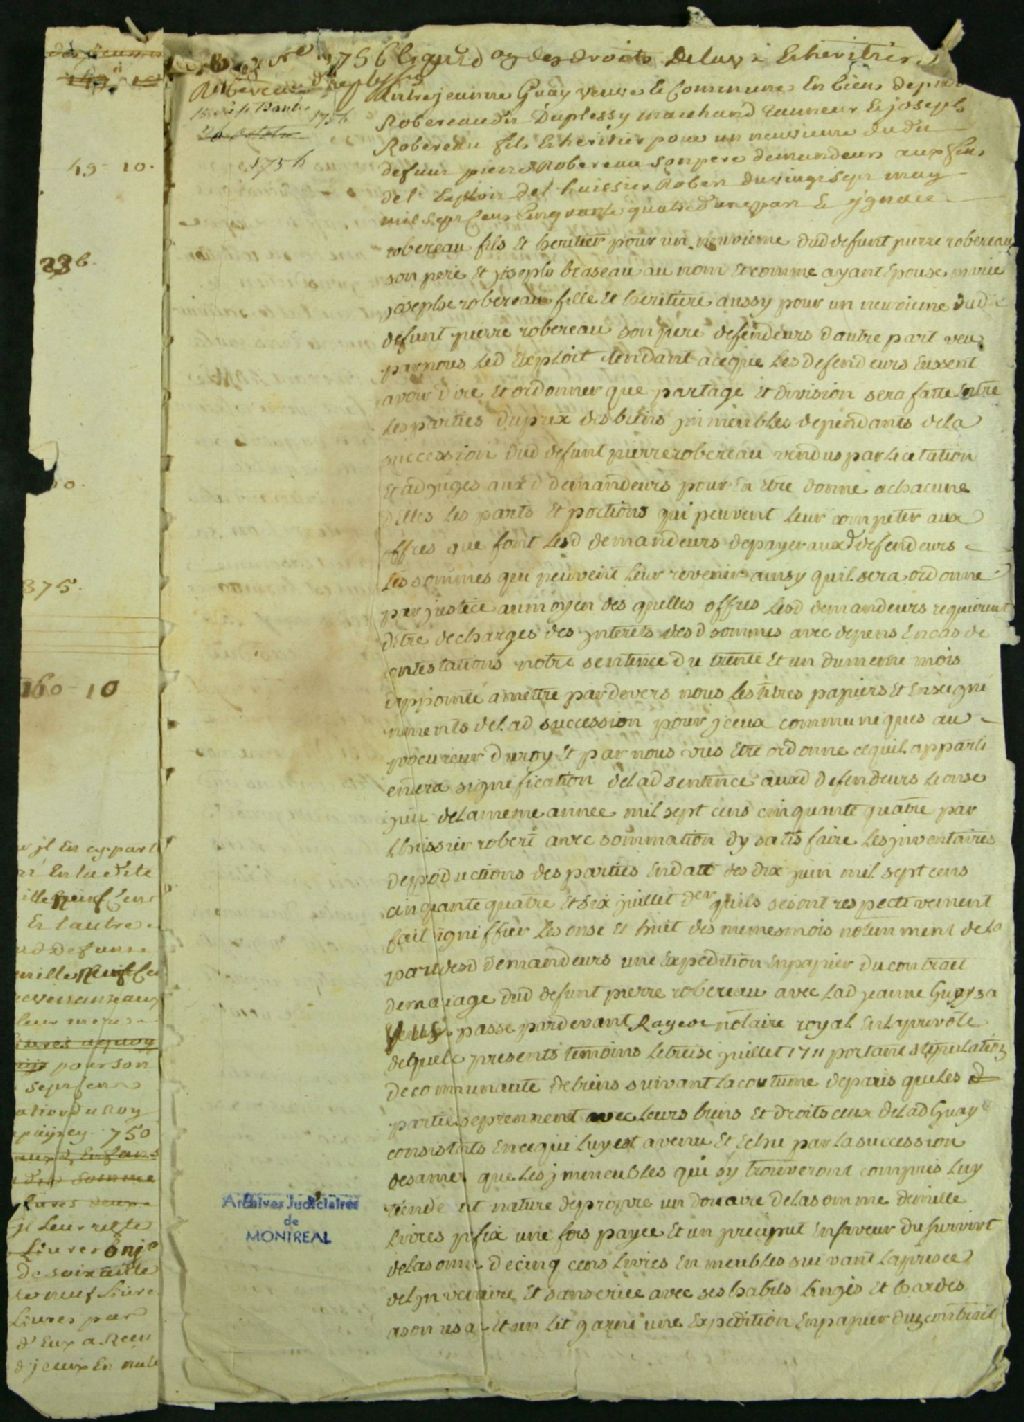 1756 Liquid on des droits De luy & heritiers
Robereau Duplessis
1756
1756
Entre jeanne Guay veuve & Commune En biens de pierre
Robereau dit Duplessy marchand Tanneur & joseph
Robereau fils & heritier pour un neuvieme du du
defunt pierre Robereau son pere demandeurs aux fins
de l'Exploit de l'huissier Robert du vingt sept may
mil sept Cens Cinquante quatre d'une part & ygnace
robereau fils et heritier pour un neuvieme dud defunt pierre robereau
son pere et joseph braseau au nom et comme ayant Epousé marie
josephe robereau fille et heritiere aussy pour un neuvieme dud
defunt pierre robereau son pere defendeurs dautre part veu
par nous led Exploit tendant a ce que les defendeurs Eussent
a voir dire et ordonner que partage et division sera faitte Entre
les parties du prix des biens jmmeubles dependants de la
succession dud defunt pierre robereau vendus par licitation
et adjugés aux d demandeurs pour En etre donne a chacune
d'Elles les parts et portions qui peuvent leur competer aux
offres que font lesd demandeurs de payer aux d defendeurs
les sommes qui peuvent leur revenir ainsy quil sera ordonne
par justice au moyen des quelles offres lesd demandeurs requierent
d'etre decharges des jnterets desd sommes avec depens En cas de
contestations notre sentence du trente et un du meme mois
dappointé a mettre par devers nous les titres papiers et Enseigne
ments de lad succession pour jceux communiqués au
procureur du roy et par nous vus Etre ordonne ce quil apparti
endra signification de lad sentence aux d defendeurs le onse
juin de la meme année mil sept cens cinquante quatre par
l'huissier robert avec sommation dy satisfaire les jnventaires
de productions des parties En datte des dix juin mil sept cens
cinquante quatre et six juillet der quils se sont respectivement
fait signiffier les onse et huit des memes mois notamment de la
part desd demandeurs une Expedition En papier du contrat
de mariage dud defunt pierre robereau avec lad jeanne Guay sa
veuve passé par devant Rageot notaire royal En la prevoté
de quebec presents temoins le treise juillet 1711 portant stipulation
de communauté de biens suivant la coutume de paris que les d
parties se prennent avec leurs biens et droits ceux de lad Guay
consistants En ce qui luy est avenu et Echu par la succession
de sa mere que les jmmeubles qui sy trouveront compris luy
tiendront nature de propre un douaire de la somme de mille
livres prefix une fois payée et un preciput En faveur du survivt
de la somme de cinq cens livres En meubles suivant la prisée
de l'jnventaire et sans criée avec ses habits linges et hardes
a son usage et un lit garni une Expedition En papier du contrat
49 - 10.
336.
375.
160 - 10
En la dite
mille Neuf Cens
Et l'autre
pour son
du Roy
750
jl leur reste
Livres onze
De soixante
neuf Livres
Livres par
d'Eux a Recu
d'jceux En
Archives Judiciaires
de
MONTREAL